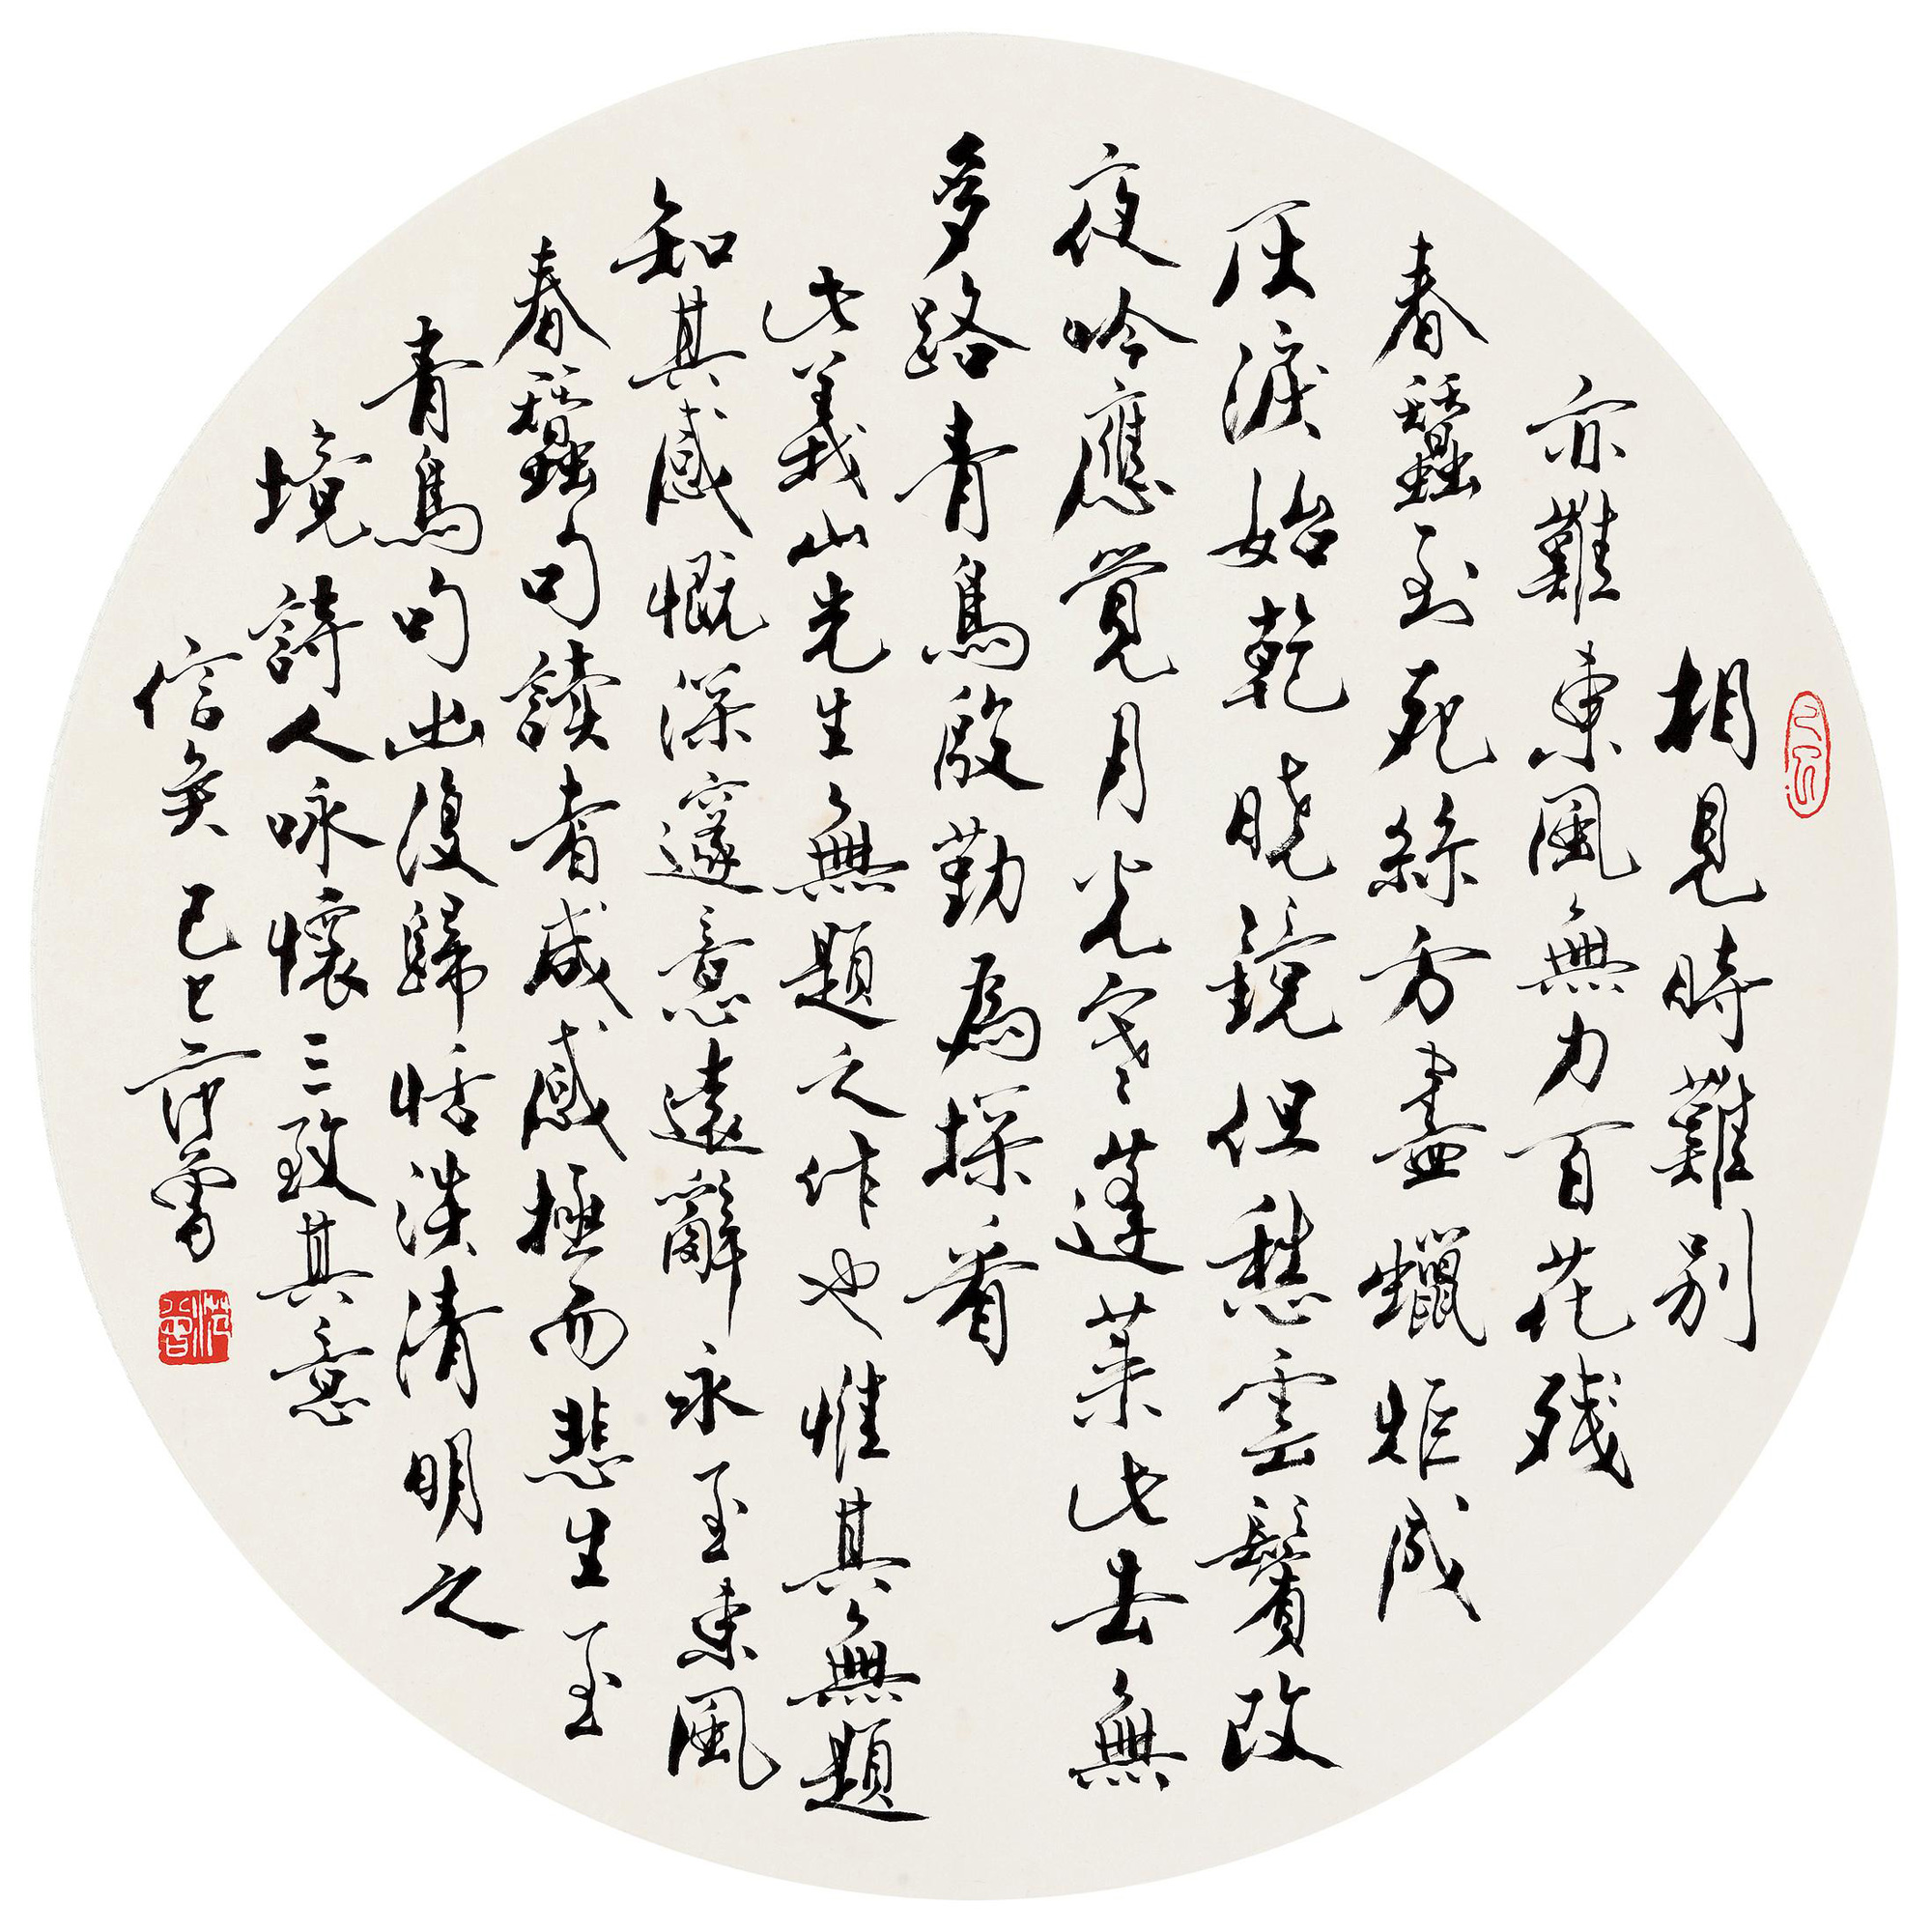 相見時難別
亦難東風無力百花残
春蠶到死絲方盡蠟炬成
灰淚始乾曉鏡但愁雲鬢改
夜吟應覺月光寒蓬萊此去無
多路青鳥殷勤為探看
此義山先生無題之作也惟其無題
知其感慨深邃意遠辭永至東風
春蠶句讀者咸感極而悲生至
青鳥句出復歸恬淡清明之
境詩人咏懷三致其意
信矣己巳范曾
范曾